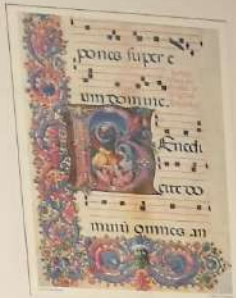 pones super e
um domine.
Benedi
cite do
minū omnes an